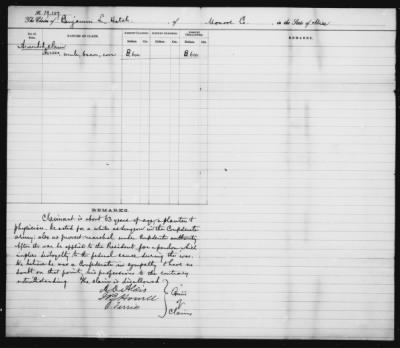 No. 19,189
The Claim of Benjamin L. Hatch, of Monroe Co. in the State of Miss
No. of Item. NATURE OF CLAIM. AMOUNT CLAIMED. AMOUNT ALLOWED. AMOUNT DISALLOWED. REMARKS.
Dollars Cts. Dollars Cts. Dollars Cts.
Amended claim
Horses, mule, bacon, corn 800 800
REMARKS.
Claimant is about 63 years of age, a planter &
physician. He acted for a while as surgeon in the Confederate
army; also as provost marshal, under Confederate authority
After the war he applied to the President for a pardon which
implies disloyalty to the federal cause during the war.
We believe he was a Confederate in sympathy & have no
doubt on that point, his professions to the contrary
notwithstanding. The claim is disallowed
A. O. Aldis
J. B. Howell
O. Ferriss
Com's
of
Claims